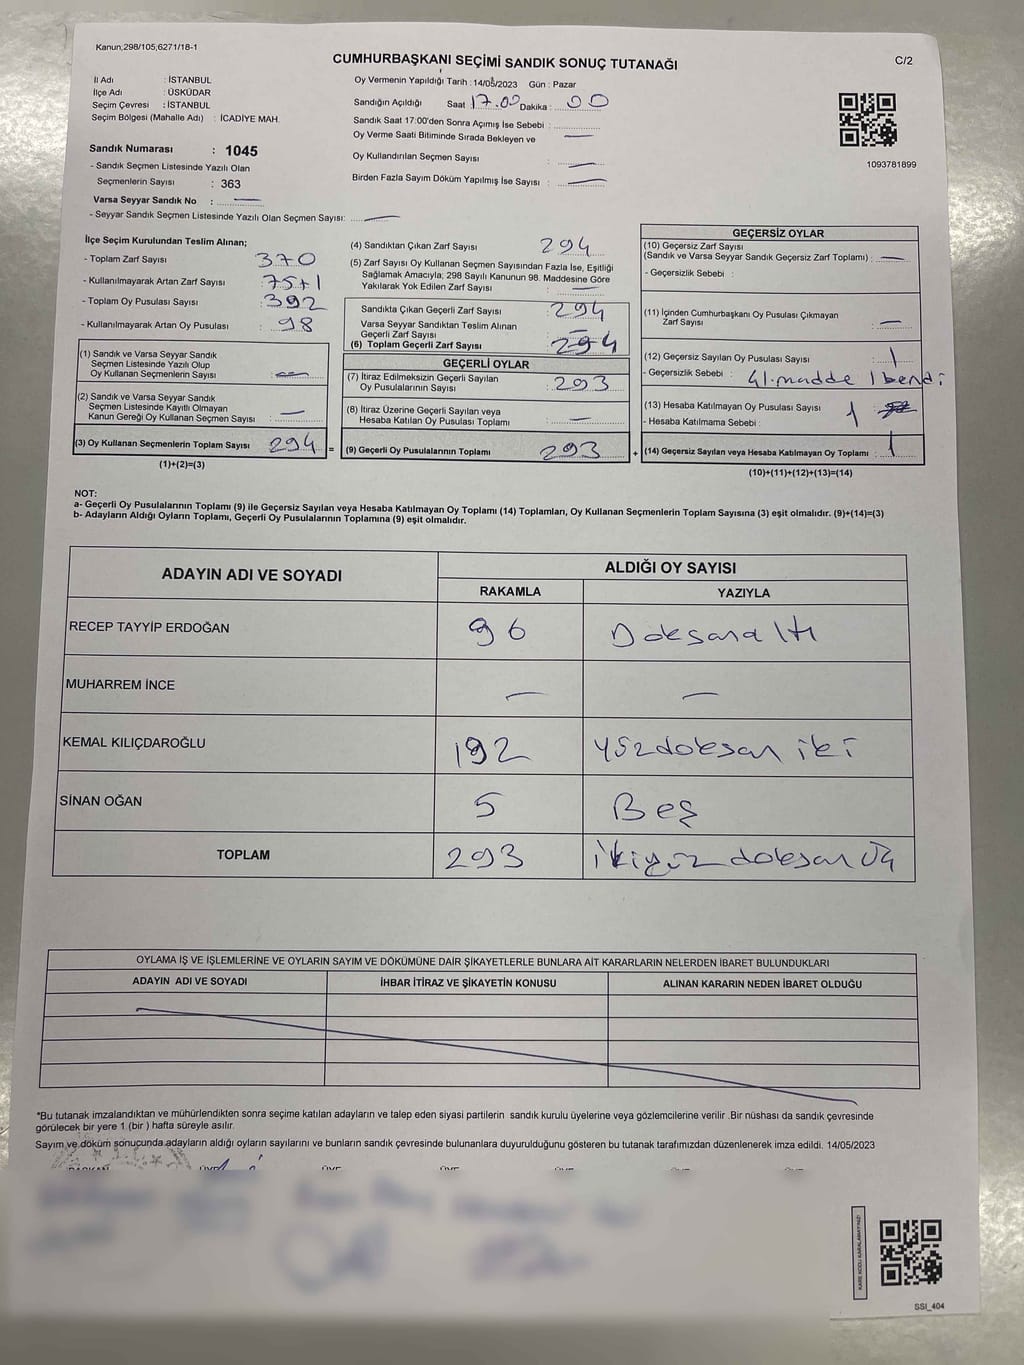 Kanun;298/105;6271/18-1
CUMHURBAŞKANI SEÇİMİ SANDIK SONUÇ TUTANAĞI
C/2
İl Adı : İSTANBUL
İlçe Adı : ÜSKÜDAR
Seçim Çevresi : İSTANBUL
Seçim Bölgesi (Mahalle Adı) : İCADİYE MAH.
Sandık Numarası : 1045
- Sandık Seçmen Listesinde Yazılı Olan
Seçmenlerin Sayısı : 363
Varsa Seyyar Sandık No : —
- Seyyar Sandık Seçmen Listesinde Yazılı Olan Seçmen Sayısı: —
Oy Vermenin Yapıldığı Tarih : 14/05/2023 Gün : Pazar
Sandığın Açıldığı Saat 17.00 Dakika : 00
Sandık Saat 17:00'den Sonra Açımış İse Sebebi :
Oy Verme Saati Bitiminde Sırada Bekleyen ve —
Oy Kullandırılan Seçmen Sayısı : —
Birden Fazla Sayım Döküm Yapılmış İse Sayısı : —
1093781899
İlçe Seçim Kurulundan Teslim Alınan;
- Toplam Zarf Sayısı : 370
- Kullanılmayarak Artan Zarf Sayısı : 75+1
- Toplam Oy Pusulası Sayısı : 392
- Kullanılmayarak Artan Oy Pusulası : 98
(1) Sandık ve Varsa Seyyar Sandık
Seçmen Listesinde Yazılı Olup
Oy Kullanan Seçmenlerin Sayısı : —
(2) Sandık ve Varsa Seyyar Sandık
Seçmen Listesinde Kayıtlı Olmayan
Kanun Gereği Oy Kullanan Seçmen Sayısı : —
(3) Oy Kullanan Seçmenlerin Toplam Sayısı 294 =
(1)+(2)=(3)
(4) Sandıktan Çıkan Zarf Sayısı 294
(5) Zarf Sayısı Oy Kullanan Seçmen Sayısından Fazla İse, Eşitliği
Sağlamak Amacıyla; 298 Sayılı Kanunun 98. Maddesine Göre
Yakılarak Yok Edilen Zarf Sayısı : —
Sandıkta Çıkan Geçerli Zarf Sayısı : 294
Varsa Seyyar Sandıktan Teslim Alınan
Geçerli Zarf Sayısı : —
(6) Toplam Geçerli Zarf Sayısı : 294
GEÇERLİ OYLAR
(7) İtiraz Edilmeksizin Geçerli Sayılan
Oy Pusulalarının Sayısı : 293
(8) İtiraz Üzerine Geçerli Sayılan veya
Hesaba Katılan Oy Pusulası Toplamı : —
(9) Geçerli Oy Pusulalarının Toplamı 293 +
GEÇERSİZ OYLAR
(10) Geçersiz Zarf Sayısı
(Sandık ve Varsa Seyyar Sandık Geçersiz Zarf Toplamı) : —
- Geçersizlik Sebebi :
(11) İçinden Cumhurbaşkanı Oy Pusulası Çıkmayan
Zarf Sayısı : —
(12) Geçersiz Sayılan Oy Pusulası Sayısı : 1
- Geçersizlik Sebebi : 41. madde 1 bendi
(13) Hesaba Katılmayan Oy Pusulası Sayısı : 1
- Hesaba Katılmama Sebebi :
(14) Geçersiz Sayılan veya Hesaba Katılmayan Oy Toplamı : 1
(10)+(11)+(12)+(13)=(14)
NOT:
a- Geçerli Oy Pusulalarının Toplamı (9) ile Geçersiz Sayılan veya Hesaba Katılmayan Oy Toplamı (14) Toplamları, Oy Kullanan Seçmenlerin Toplam Sayısına (3) eşit olmalıdır. (9)+(14)=(3)
b- Adayların Aldığı Oyların Toplamı, Geçerli Oy Pusulalarının Toplamına (9) eşit olmalıdır.
ADAYIN ADI VE SOYADI ALDIĞI OY SAYISI
RAKAMLA YAZIYLA
RECEP TAYYİP ERDOĞAN 96 Doksanaltı
MUHARREM İNCE — —
KEMAL KILIÇDAROĞLU 192 yüzdoksan iki
SİNAN OĞAN 5 Beş
TOPLAM 293 ikiyüz doksan üç
OYLAMA İŞ VE İŞLEMLERİNE VE OYLARIN SAYIM VE DÖKÜMÜNE DAİR ŞİKAYETLERLE BUNLARA AİT KARARLARIN NELERDEN İBARET BULUNDUKLARI
ADAYIN ADI VE SOYADI İHBAR İTİRAZ VE ŞİKAYETİN KONUSU ALINAN KARARIN NEDEN İBARET OLDUĞU
*Bu tutanak imzalandıktan ve mühürlendikten sonra seçime katılan adayların ve talep eden siyasi partilerin sandık kurulu üyelerine veya gözlemcilerine verilir .Bir nüshası da sandık çevresinde
görülecek bir yere 1 (bir ) hafta süreyle asılır.
Sayım ve döküm sonucunda adayların aldığı oyların sayılarını ve bunların sandık çevresinde bulunanlara duyurulduğunu gösteren bu tutanak tarafımızdan düzenlenerek imza edildi. 14/05/2023
BAŞKAN ÜYE ÜYE ÜYE ÜYE ÜYE ÜYE
KARE KODU KARALAMAYINIZ!
SSI_404